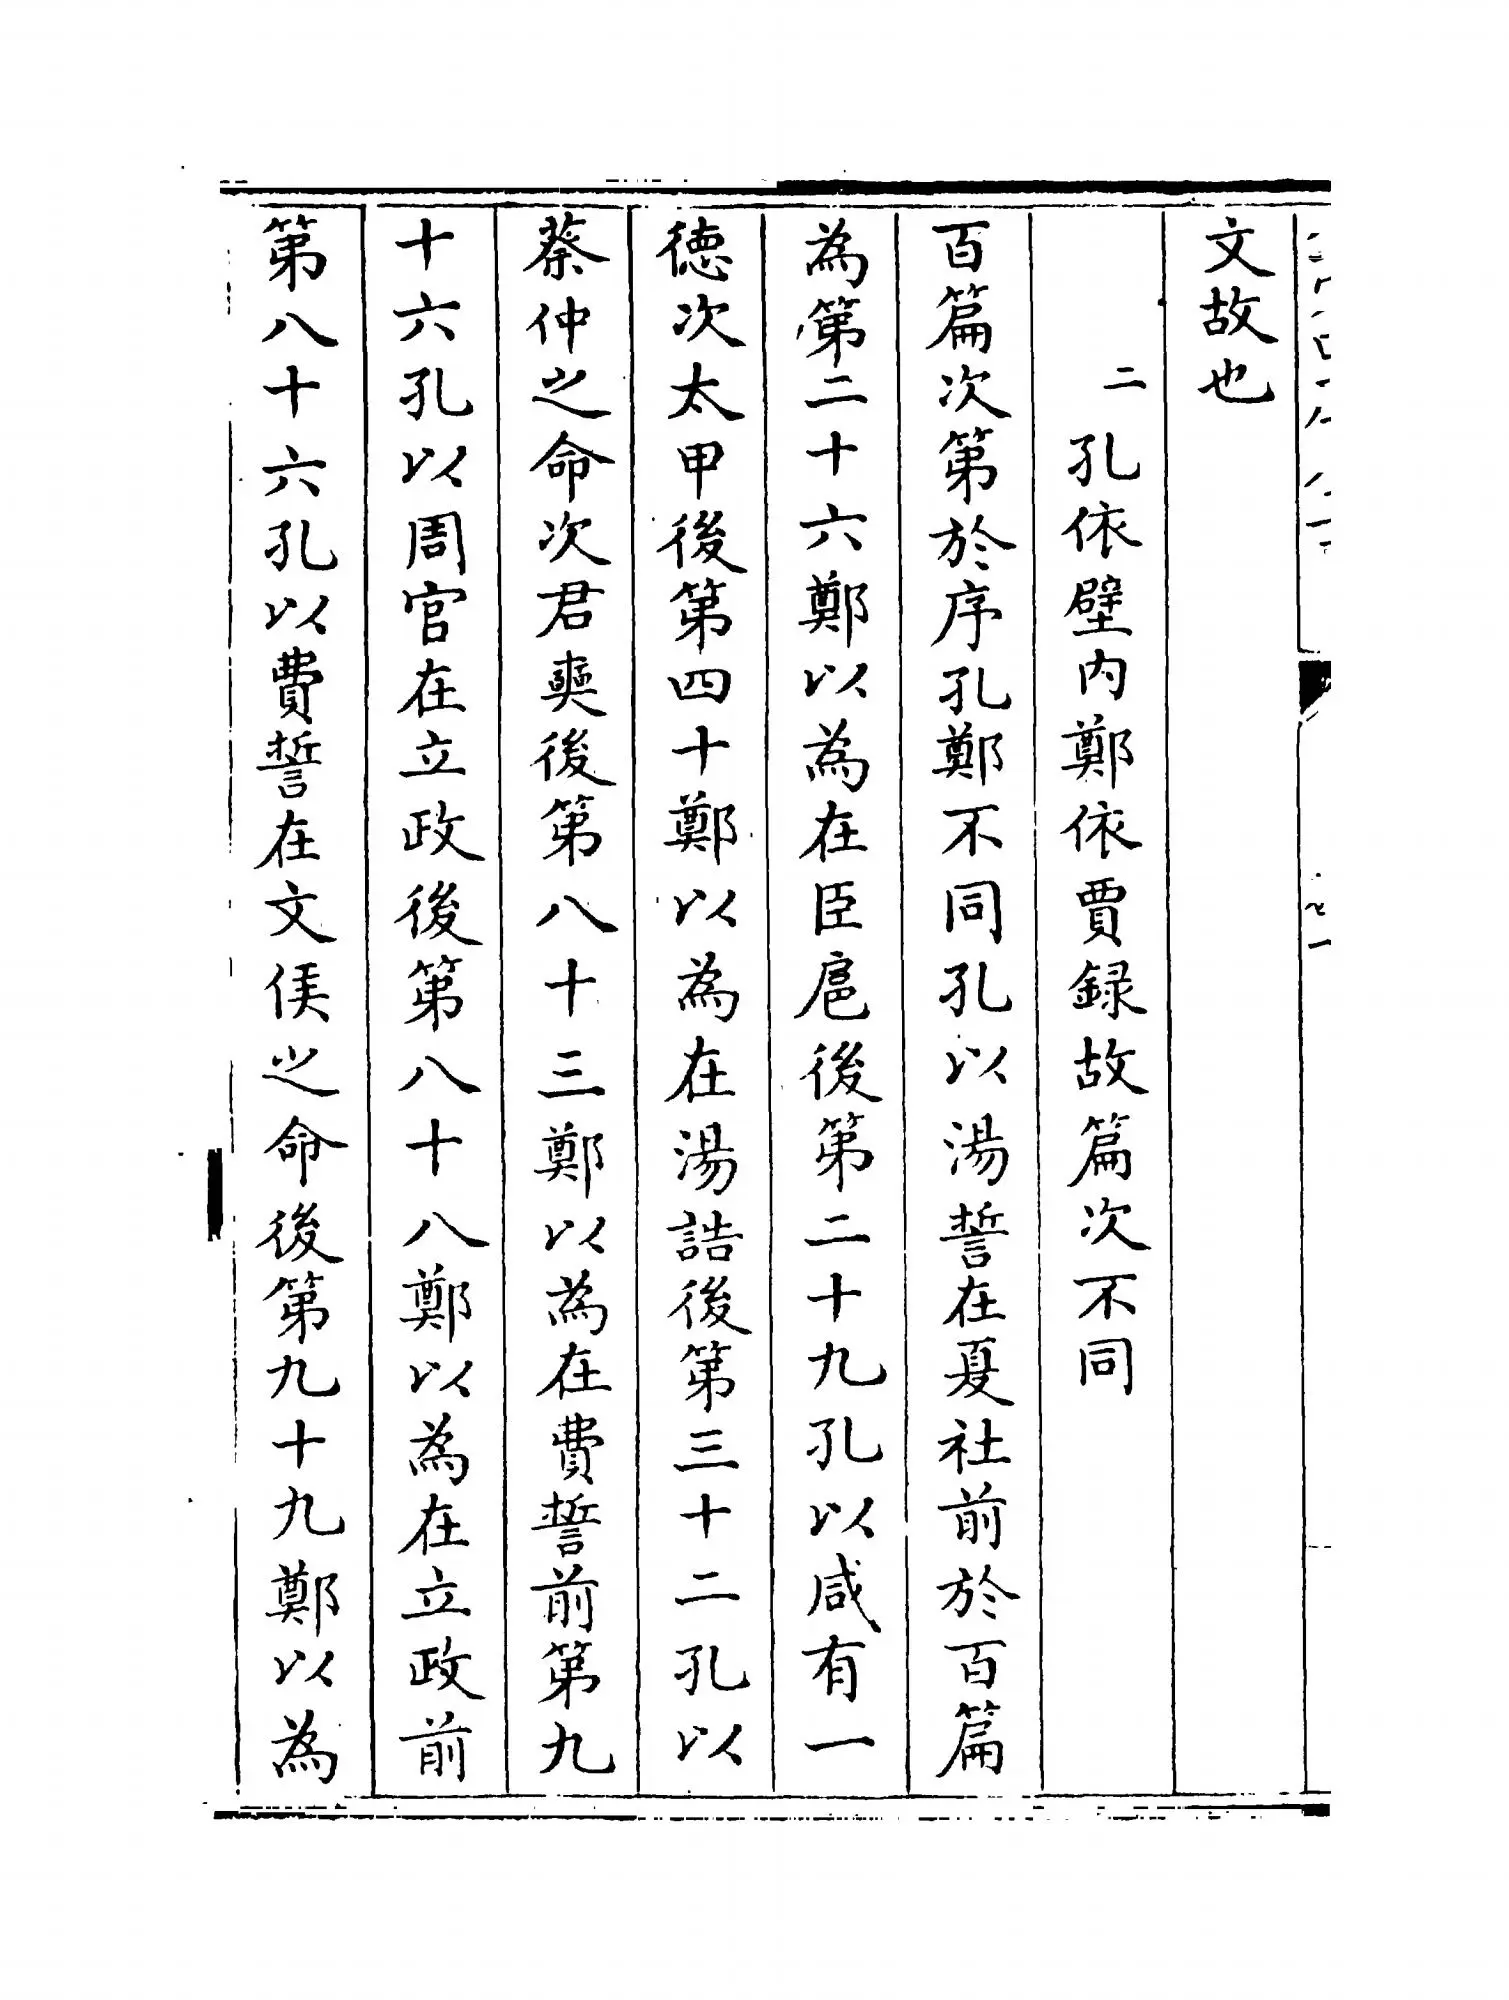 文故也
二孔依壁内鄭依賈録故篇次不同
百篇次第於序孔鄭不同孔以湯誓在夏社前於百篇
為第二十六鄭以為在臣扈後第二十九孔以咸有一
徳次太甲後第四十鄭以為在湯誥後第三十二孔以
蔡仲之命次君奭後第八十三鄭以為在費誓前第九
十六孔以周官在立政後第八十八鄭以為在立政前
第八十六孔以費誓在文侯之命後第九十九鄭以為